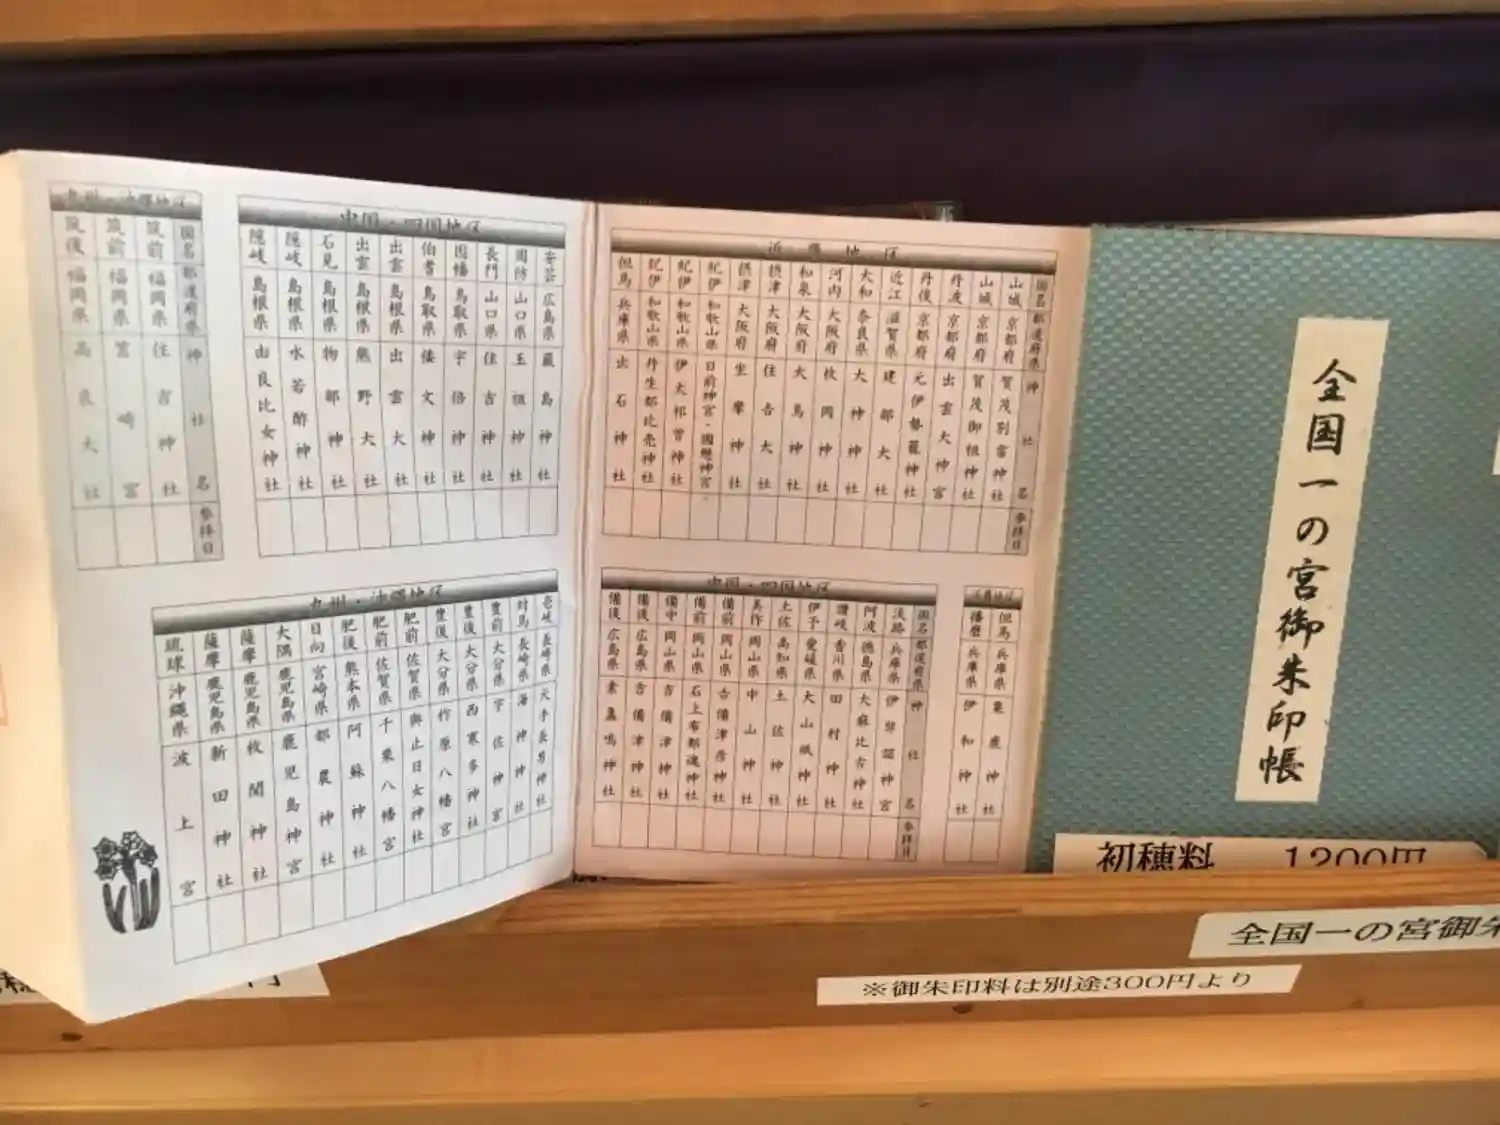 全国一の宮御朱印帳
初穂料 1200円
全国一の宮御朱
※御朱印料は別途300円より
近畿地区
国名 都道府県 神社名 参拝日
山城 京都府 賀茂別雷神社
山城 京都府 賀茂御祖神社
丹波 京都府 出雲大神宮
丹後 京都府 元伊勢籠神社
近江 滋賀県 建部大社
大和 奈良県 大神神社
河内 大阪府 枚岡神社
和泉 大阪府 大鳥神社
摂津 大阪府 住吉大社
摂津 大阪府 坐摩神社
紀伊 和歌山県 日前神宮・國懸神宮
紀伊 和歌山県 伊太祁曽神社
紀伊 和歌山県 丹生都比売神社
但馬 兵庫県 出石神社
近畿地区
但馬 兵庫県 粟鹿神社
播磨 兵庫県 伊和神社
中国・四国地区
国名 都道府県 神社名 参拝日
淡路 兵庫県 伊弉諾神宮
阿波 徳島県 大麻比古神社
讃岐 香川県 田村神社
伊予 愛媛県 大山祇神社
土佐 高知県 土佐神社
美作 岡山県 中山神社
備前 岡山県 吉備津彦神社
備前 岡山県 石上布都魂神社
備中 岡山県 吉備津神社
備後 広島県 吉備津神社
備後 広島県 素盞嗚神社
中国・四国地区
安芸 広島県 厳島神社
周防 山口県 玉祖神社
長門 山口県 住吉神社
因幡 鳥取県 宇倍神社
伯耆 鳥取県 倭文神社
出雲 島根県 出雲大社
出雲 島根県 熊野大社
石見 島根県 物部神社
隠岐 島根県 水若酢神社
隠岐 島根県 由良比女神社
九州・沖縄地区
国名 都道府県 神社名 参拝日
筑前 福岡県 住吉神社
筑前 福岡県 筥崎宮
筑後 福岡県 高良大社
九州・沖縄地区
壱岐 長崎県 天手長男神社
対馬 長崎県 海神神社
豊前 大分県 宇佐神宮
豊後 大分県 西寒多神社
豊後 大分県 柞原八幡宮
肥前 佐賀県 與止日女神社
肥前 佐賀県 千栗八幡宮
肥後 熊本県 阿蘇神社
日向 宮崎県 都農神社
大隅 鹿児島県 鹿児島神宮
薩摩 鹿児島県 枚聞神社
薩摩 鹿児島県 新田神社
琉球 沖縄県 波上宮